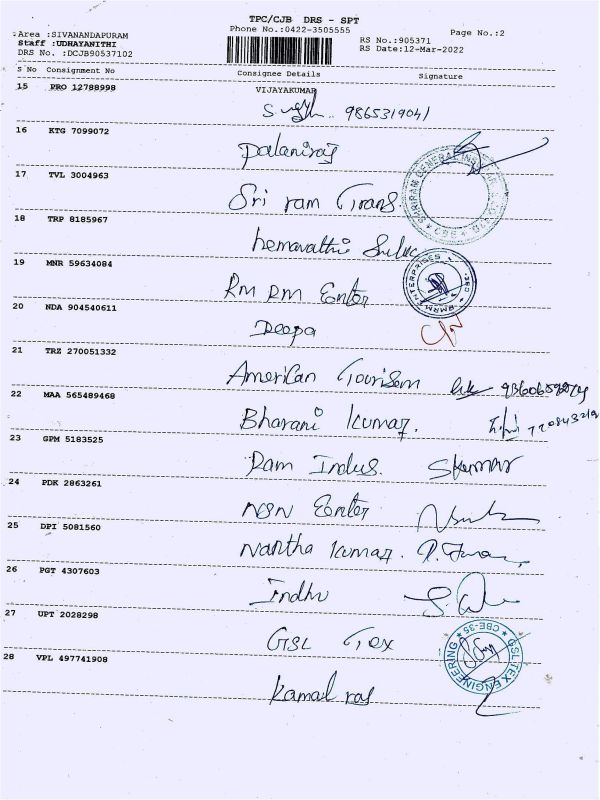 TPC/CJB DRS - SPT
Area :SIVANANDAPURAM Phone No.:0422-3505555 Page No.:2
Staff :UDHAYANITHI RS No.:905371
DRS No. :DCJB90537102 RS Date:12-Mar-2022
S No Consignment No Consignee Details Signature
15 PRO 12788998 VIJAYAKUMAR
9865319041
16 KTG 7099072
Palaniraj
17 TVL 3004963
Sri ram Trans.
18 TRP 8185967
hemavathi
19 MNR 59634084
RM RM Enter
RMRM ENTERPRISES
20 NDA 904540611
Deepa
21 TRZ 270051332
American Tourism
22 MAA 565489468
Bharani Kumar.
23 GPM 5183525
Ram Indus. Skumar
24 PDK 2863261
NSN Enter
25 DPI 5081560
Nantha Kumar.
26 PGT 4307603
Indhu
27 UPT 2028298
GSL Tex
GSL TEX ENGINEERING CBE-35
28 VPL 497741908
Kamal raj